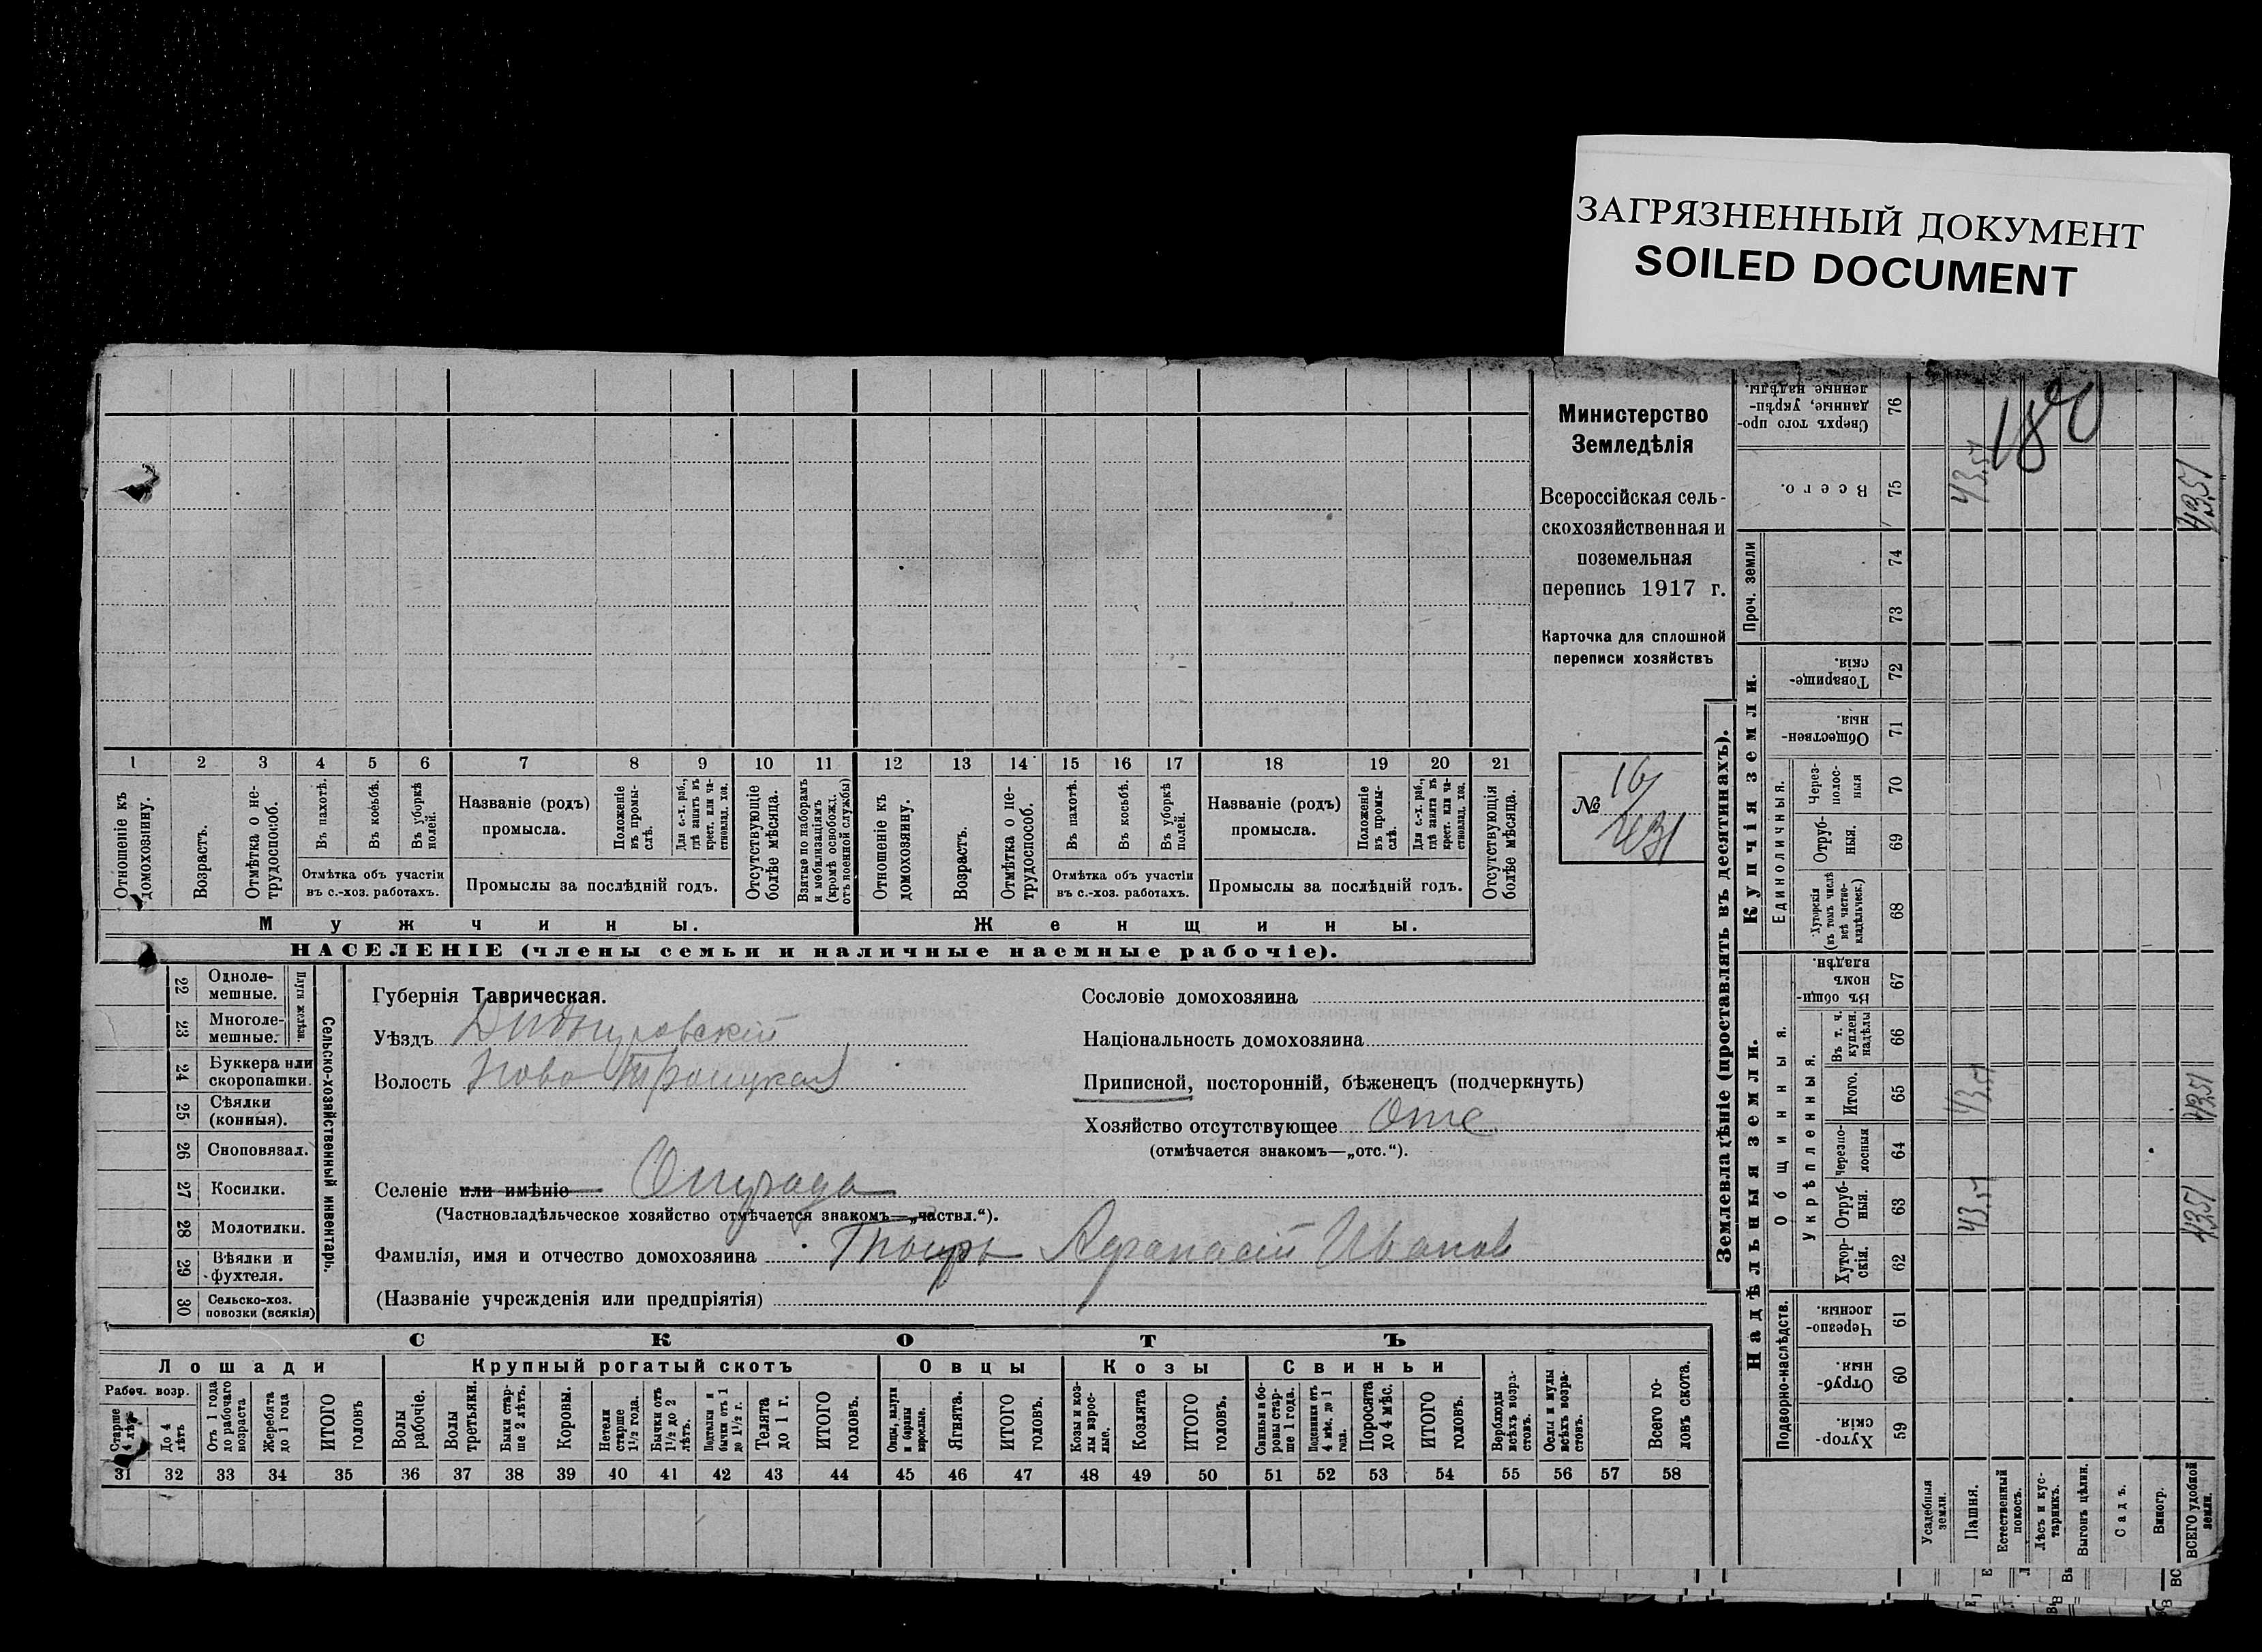 ЗАГРЯЗНЕННЫЙ ДОКУМЕНТ
SOILED DOCUMENT
Министерство
Земледѣлія
Всероссійская сель-
скохозяйственная и
поземельная
перепись 1917 г.
Карточка для сплошной
переписи хозяйствъ
№ 16
1 2 3 4 5 6 7 8 9 10 11 12 13 14 15 16 17 18 19 20 21
Отношеніе къ домохозяину.
Возрастъ.
Отмѣтка о не-трудоспособ.
Въ пахотѣ.
Въ косьбѣ.
Въ уборкѣ полей.
Отмѣтка объ участіи
въ с.-хоз. работахъ.
Названіе (родъ)
промысла.
Положеніе въ промы-слѣ.
Для с.-х. раб., гдѣ занятъ въ крест. или ча-стновлад. хоз.
Промыслы за послѣдній годъ.
Отсутствующіе болѣе мѣсяца.
Взятые по наборамъ и мобилизаціямъ (кромѣ освобожд. отъ военной службы)
Отношеніе къ домохозяину.
Возрастъ.
Отмѣтка о не-трудоспособ.
Въ пахотѣ.
Въ косьбѣ.
Въ уборкѣ полей.
Отмѣтка объ участіи
въ с.-хоз. работахъ.
Названіе (родъ)
промысла.
Положеніе въ промы-слѣ.
Для с.-х. раб., гдѣ занята въ крест. или ча-стновлад. хоз.
Промыслы за послѣдній годъ.
Отсутствующія болѣе мѣсяца.
Мужчины. Женщины.
НАСЕЛЕНІЕ (члены семьи и наличные наемные рабочіе).
22 Одноле-мешные.
23 Многоле-мешные.
Плуги желѣзн.
24 Буккера или скоропашки.
25 Сѣялки (конныя).
26 Сноповязал.
27 Косилки.
28 Молотилки.
29 Вѣялки и фухтеля.
30 Сельско-хоз. повозки (всякія)
Сельско-хозяйственный инвентарь.
Губернія Таврическая.
Уѣздъ Днѣпровскій
Волость Ново Троицкая
Селеніе или имѣніе
(Частновладѣльческое хозяйство отмѣчается знакомъ—„частвл.“).
Фамилія, имя и отчество домохозяина Афанасій Иванов
(Названіе учрежденія или предпріятія)
Сословіе домохозяина
Національность домохозяина
Приписной, посторонній, бѣженецъ (подчеркнуть)
Хозяйство отсутствующее Отс
(отмѣчается знакомъ—„отс.“).
СКОТЪ
Лошади Крупный рогатый скотъ Овцы Козы Свиньи
Рабоч. возр.
Старше 4 лѣтъ
До 4 лѣтъ
Отъ 1 года до рабочаго возраста
Жеребята до 1 года
ИТОГО головъ
Волы рабочіе.
Волы третьяки.
Быки стар-ше 2 лѣтъ.
Коровы.
Нетели старше 1½ года.
Бычки отъ 1½ до 2 лѣтъ.
Подтелки и бычки отъ 1 до 1½ г.
Телята до 1 г.
ИТОГО головъ.
Овцы, валухи и бараны взрослые.
Ягнята.
ИТОГО головъ.
Козы и коз-лы взрос-лые.
Козлята
ИТОГО головъ.
Свиньи и бо-ровы стар-ше 1 года.
Подсвинки отъ 4 мѣс. до 1 года.
Поросята до 4 мѣс.
ИТОГО головъ.
Верблюды всѣхъ возра-стовъ.
Ослы и мулы всѣхъ возра-стовъ.
Всего го-ловъ скота.
31 32 33 34 35 36 37 38 39 40 41 42 43 44 45 46 47 48 49 50 51 52 53 54 55 56 57 58
Землевладѣніе (проставлять въ десятинахъ).
Надѣльныя земли. Купчія земли. Проч. земли
Подворно-наслѣдств. Общинныя. Укрѣпленныя. Единоличныя.
Хутор-скія. 59
Отруб-ныя. 60
Черезпо-лосныя. 61
Хутор-скія. 62
Отруб-ныя. 63 43,51 4351
Черезпо-лосныя 64
Итого. 65 43,51 4351
Въ т. ч. куплен. надѣлы 66
Въ общи-номъ владѣн. 67
Хуторскія (въ томъ числѣ всѣ частно-владѣльческ.) 68
Отруб-ныя. 69
Через-полос-ныя 70
Обществен-ныя. 71
Товарище-скія. 72
73
74
Всего. 75 43,51 4351
Сверхъ того про-данные, укрѣп-ленные надѣлы. 76
Усадебныя земли.
Пашня.
Естественный покосъ.
Лѣсъ и кус-тарникъ.
Выгонъ цѣлин.
Садъ.
Виногр.
ВСЕГО удобной земли.